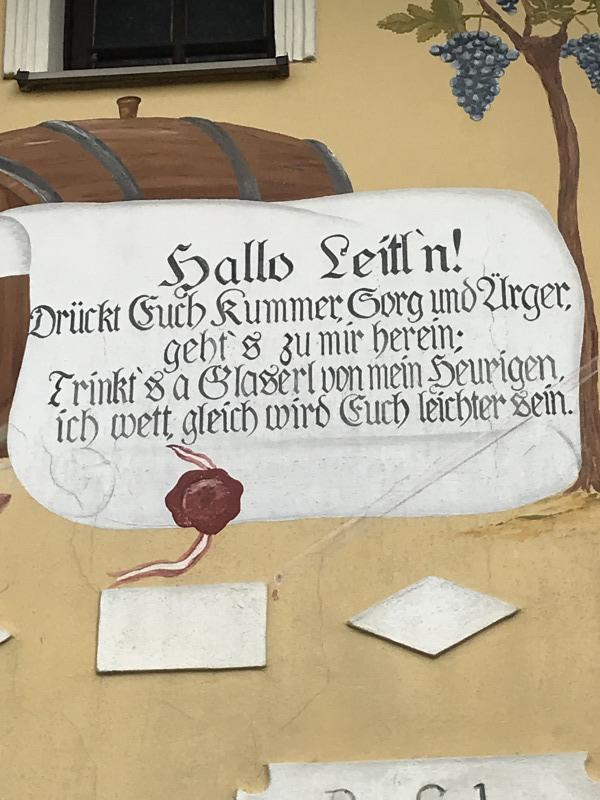 Hallo Leitl`n!
Drückt Euch Kummer, Sorg und Ärger,
geht`s zu mir herein;
Trinkt`s a Glaserl von mein Heurigen,
ich wett, gleich wird Euch leichter sein.